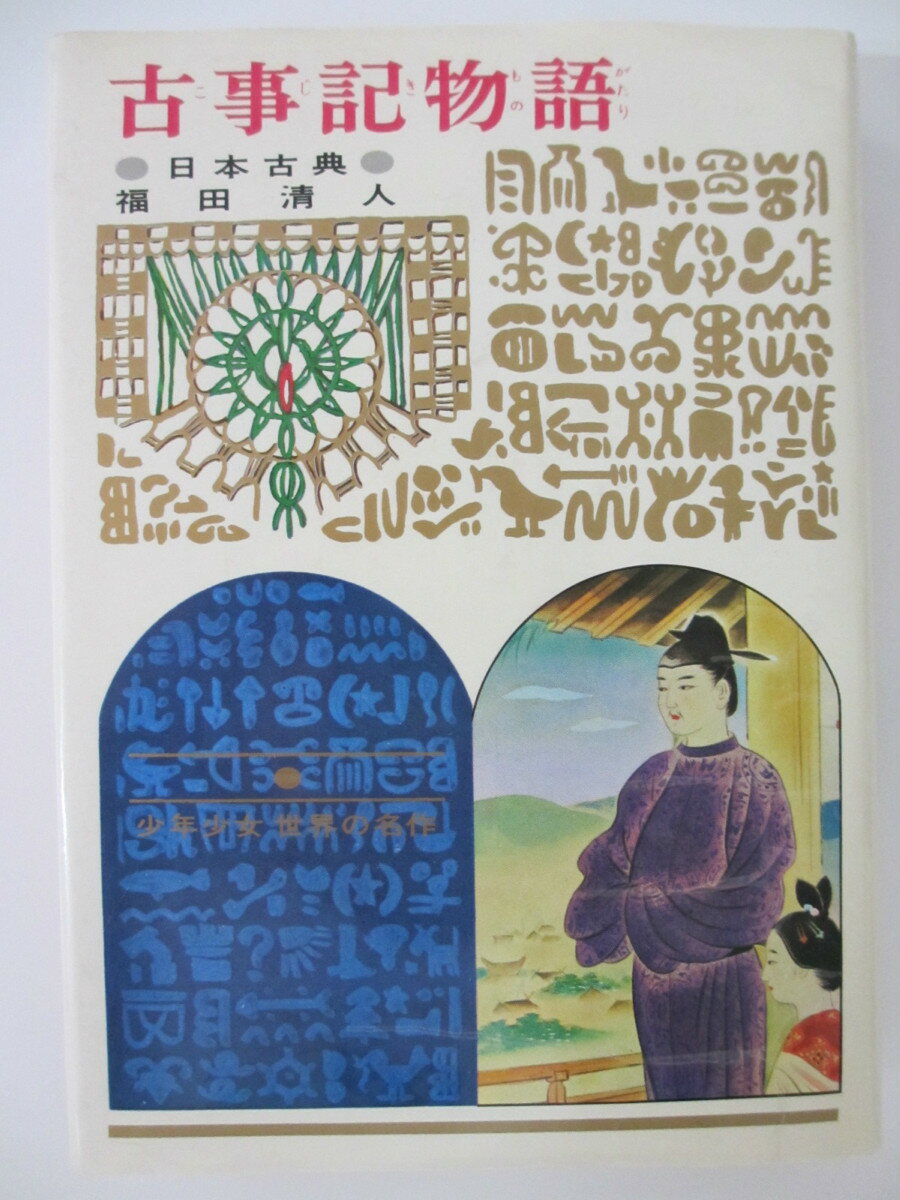 古事記物語
こじきものがたり
●日本古典●
福田清人
少年少女 世界の名作